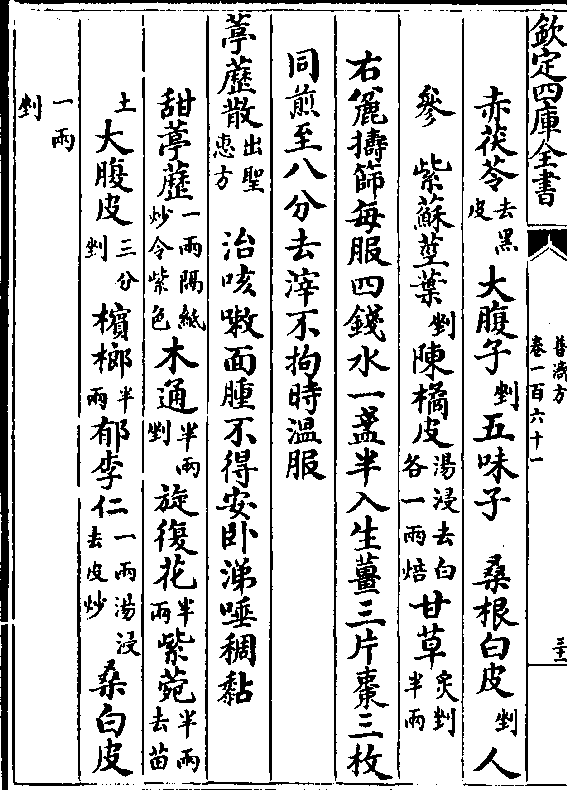 欽定四庫全書
普濟方
卷一百六十一
赤茯苓去黑皮 大腹子剉 五味子 桑根白皮剉 人
參 紫蘇莖葉剉 陳橘皮湯浸去白各一兩焙 甘草炙剉半兩
右麄擣篩每服四錢水一盞半入生薑三片棗三枚
同煎至八分去滓不拘時温服
葶藶散出聖惠方 治咳嗽面腫不得安卧涕唾稠黏
甜葶藶一兩隔紙炒令紫色 木通半兩剉 旋復花半兩 紫菀半兩去苗
土 大腹皮三分剉 檳榔半兩 郁李仁一兩湯浸去皮炒 桑白皮
一兩剉